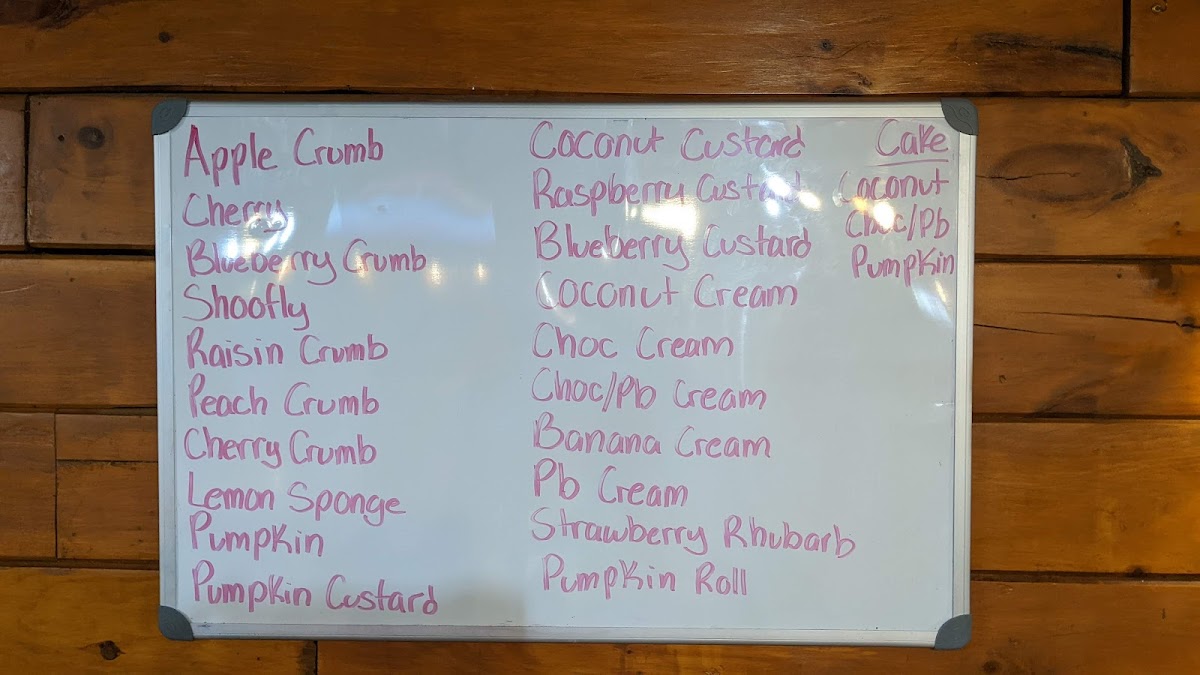 Apple Crumb
Cherry
Blueberry Crumb
Shoofly
Raisin Crumb
Peach Crumb
Cherry Crumb
Lemon Sponge
Pumpkin
Pumpkin Custard
Coconut Custard
Raspberry Custard
Blueberry Custard
Coconut Cream
Choc Cream
Choc/Pb Cream
Banana Cream
Pb Cream
Strawberry Rhubarb
Pumpkin Roll
Cake
Coconut
Choc/Pb
Pumpkin